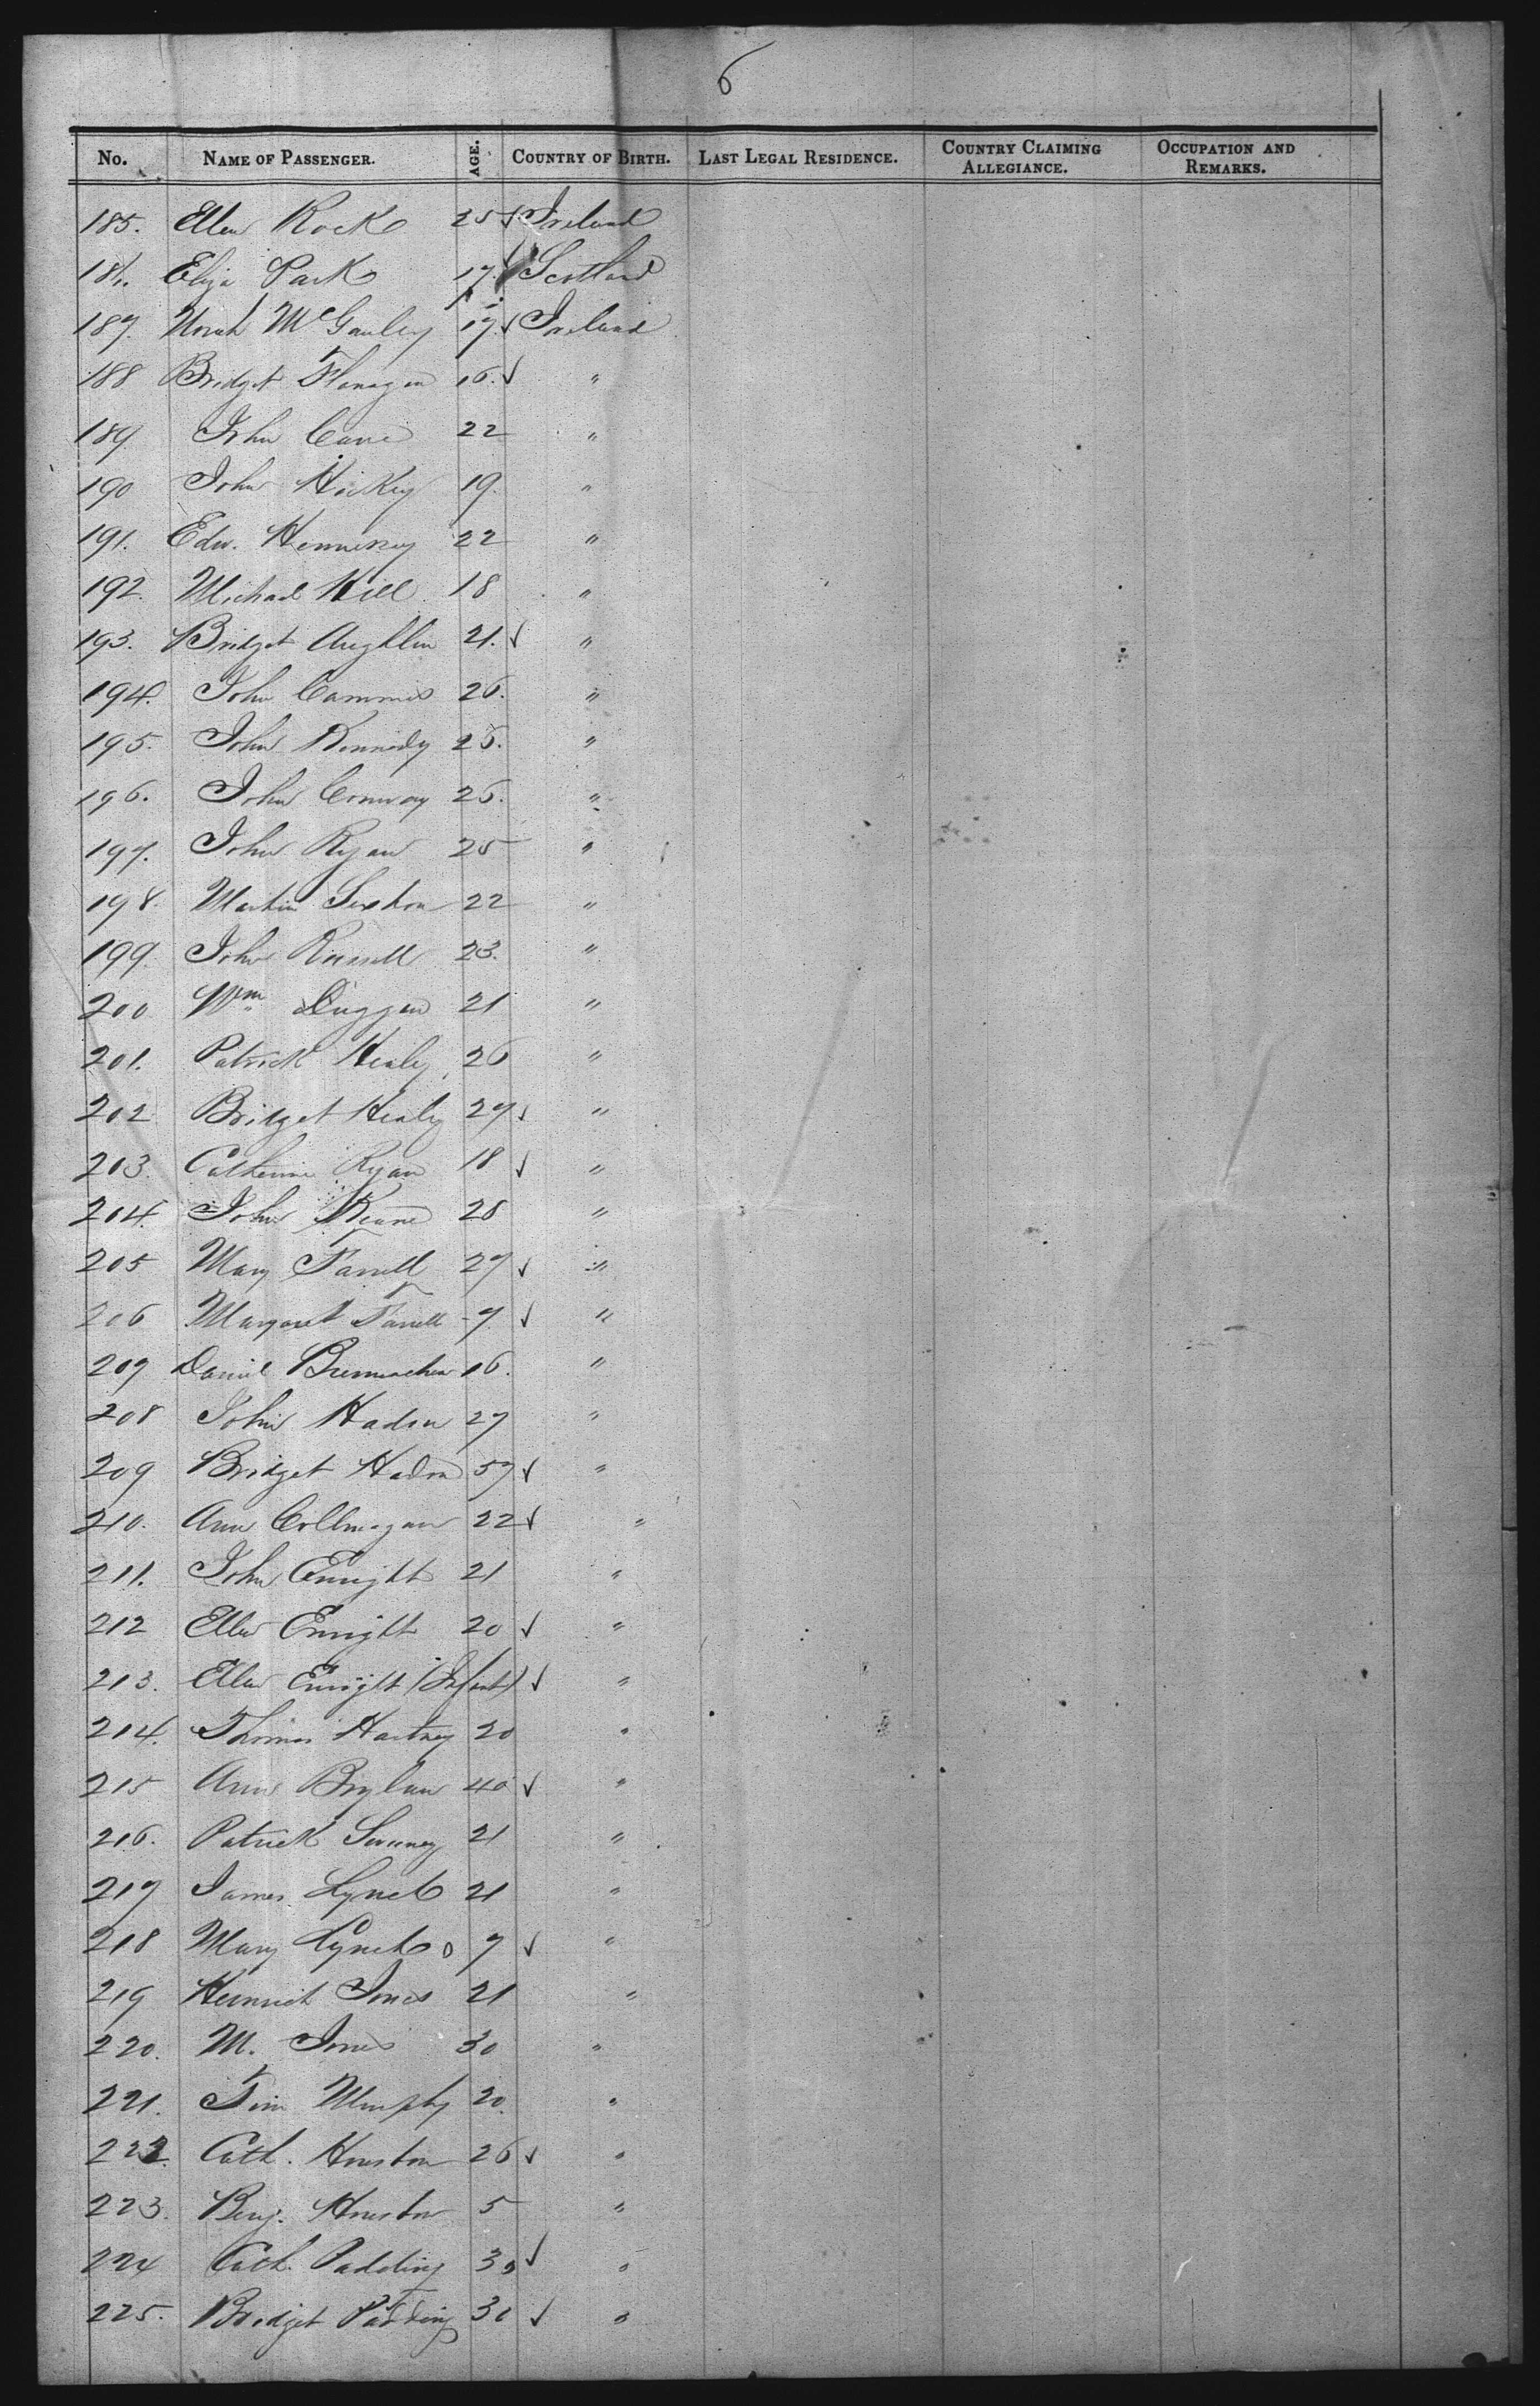 6
No. NAME OF PASSENGER. AGE. COUNTRY OF BIRTH. LAST LEGAL RESIDENCE. COUNTRY CLAIMING ALLEGIANCE. OCCUPATION AND REMARKS.
185. Ellen Rock 25 ✓ Ireland
186. Eliza Park 17. ✓ Scotland
187. Norah McGauley 17. ✓ Ireland
188 Bridget Flanagan 16. ✓ "
189 John 22 "
190 John Hickey 19. "
191. Edw. Hennessey 22 "
192. Michael Hill 18 "
193. Bridget Aughlin 21. ✓ "
194. John Cammis 26. "
195. John Kennedy 25. "
196. John Conway 26. "
197. John Ryan 25 "
198. Martin Sexton 22 "
199. John Russell 23. "
200 Wm Duggan 21 "
201. Patrick Healy 26 "
202 Bridget Healy 27 ✓ "
203. Catherine Ryan 18 ✓ "
204. John Keane 28 "
205 Mary Farrell 27 ✓ "
206 Margaret Farrell 7 ✓ "
207 Daniel 16. "
208 John Haden 27 "
209 Bridget 57 ✓ "
210. Ann 22 ✓ "
211. John Enright 21 "
212 Ellen Enright 20 ✓ "
213. Ellen Enright (Infant) ✓ "
214. Thomas Hartney 20 "
215 Ann Boylan 40 ✓ "
216. Patrick 21 "
217 James Lynch 21 "
218 Mary Lynch 7 ✓ "
219 Jones 21 "
220. M. Jones 30 "
221. Tim Murphy 20. "
222. Cath. Houston 26 ✓ "
223. Benj. Houston 5 "
224 Cath. Padding 30 ✓ "
225. Bridget Padding 30 ✓ "